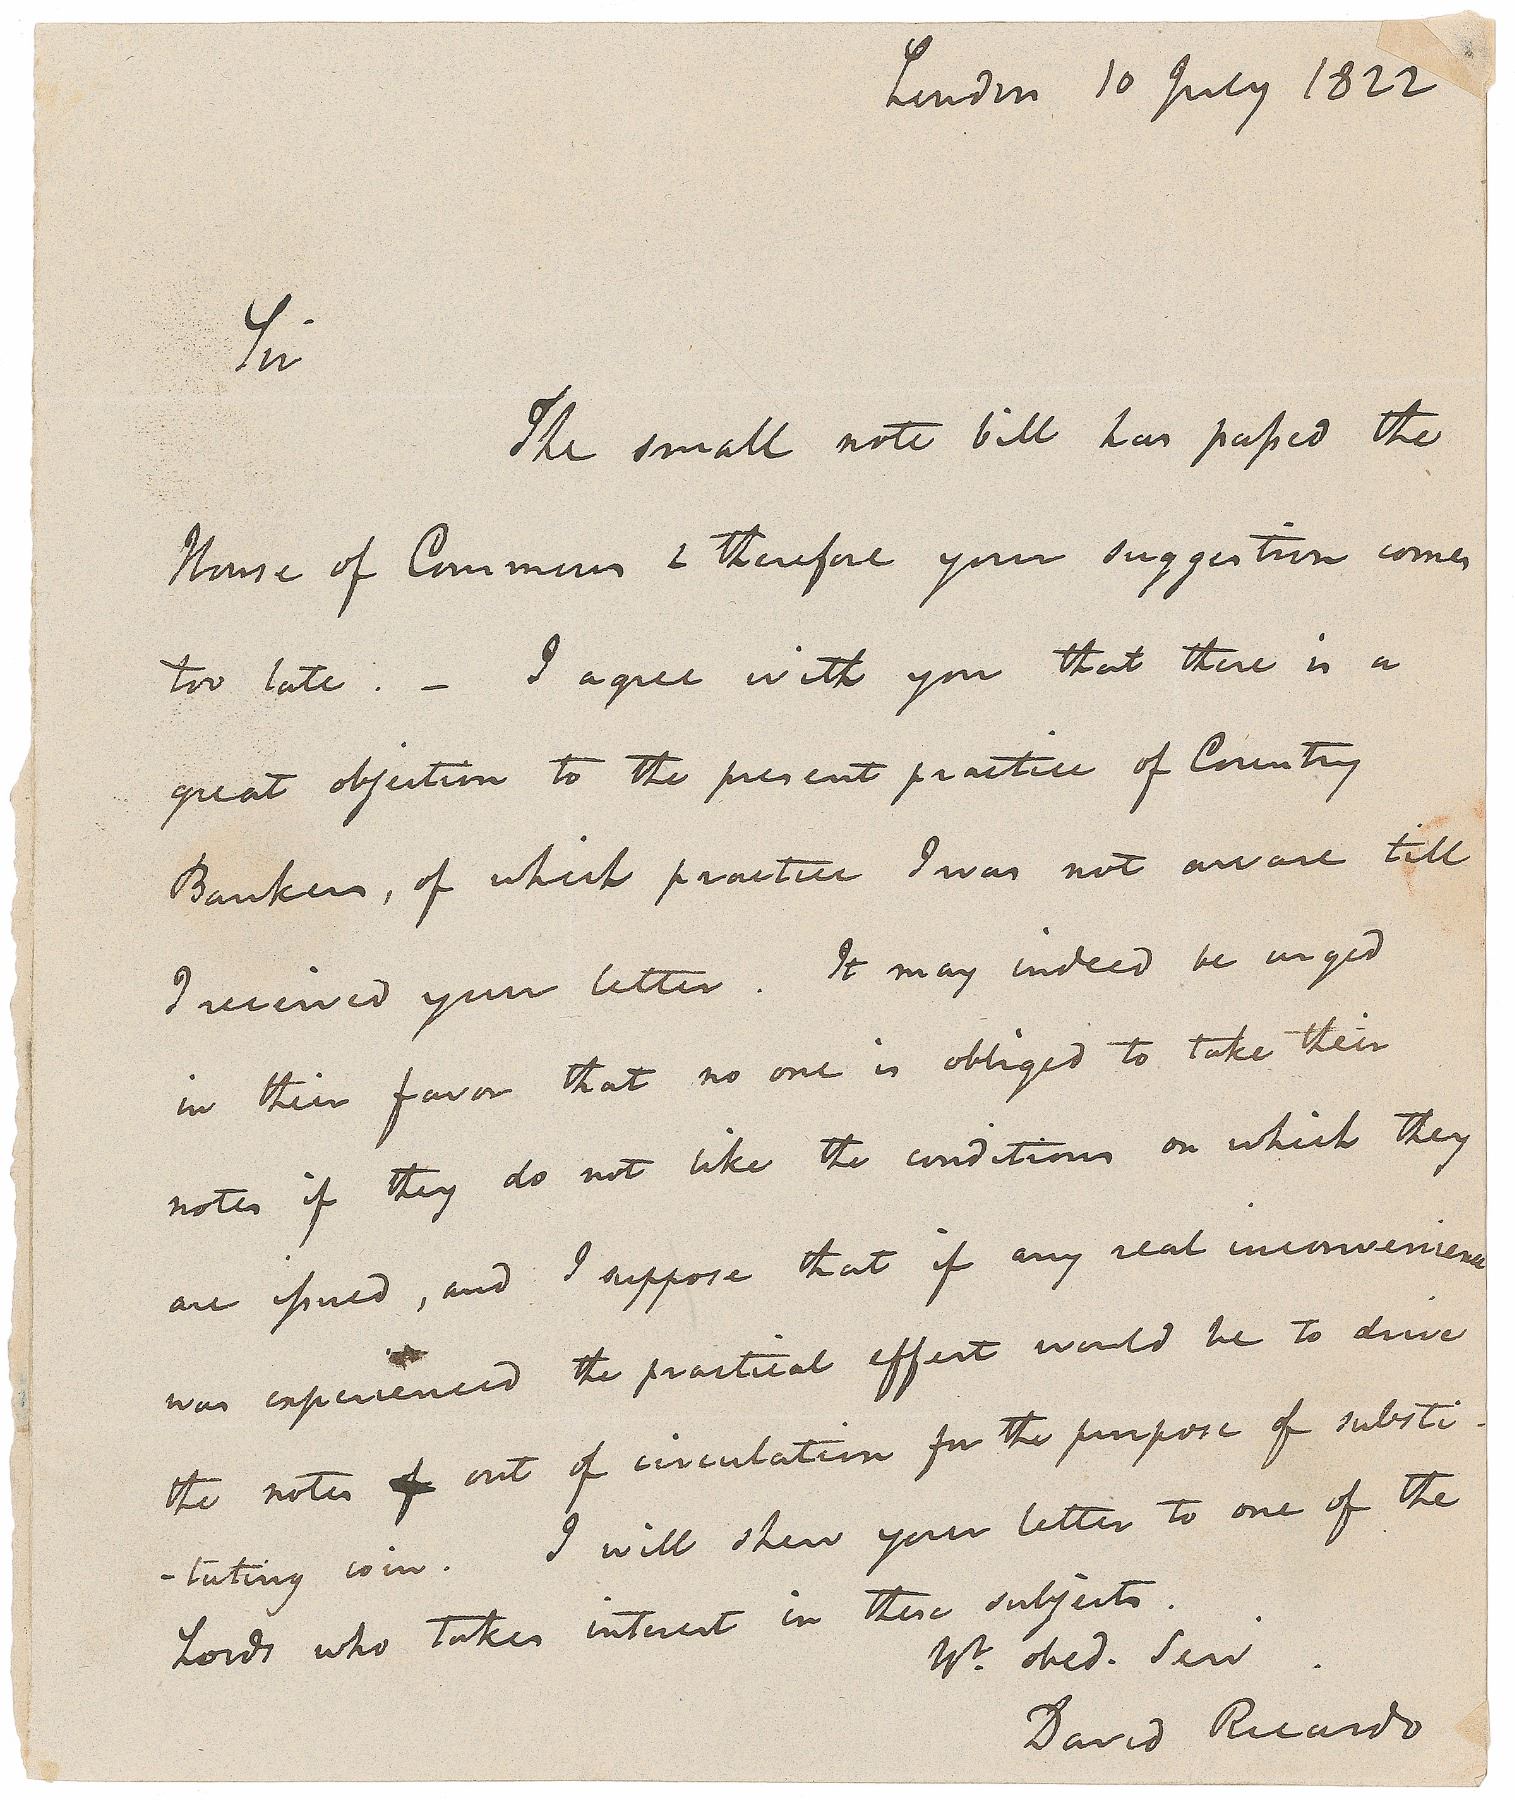 London 10 July 1822
Sir
The small note bill has passed the
House of Commons & therefore your suggestion comes
too late. — I agree with you that there is a
great objection to the present practice of Country
Bankers, of which practice I was not aware till
I received your letter. It may indeed be urged
in their favor that no one is obliged to take their
notes if they do not like the conditions on which they
are issued, and I suppose that if any real inconvenience
was experienced the practical effect would be to drive
the notes out of circulation for the purpose of substi-
-tuting coin. I will shew your letter to one of the
Lords who takes interest in these subjects.
Yr. obed. Serv
David Ricardo